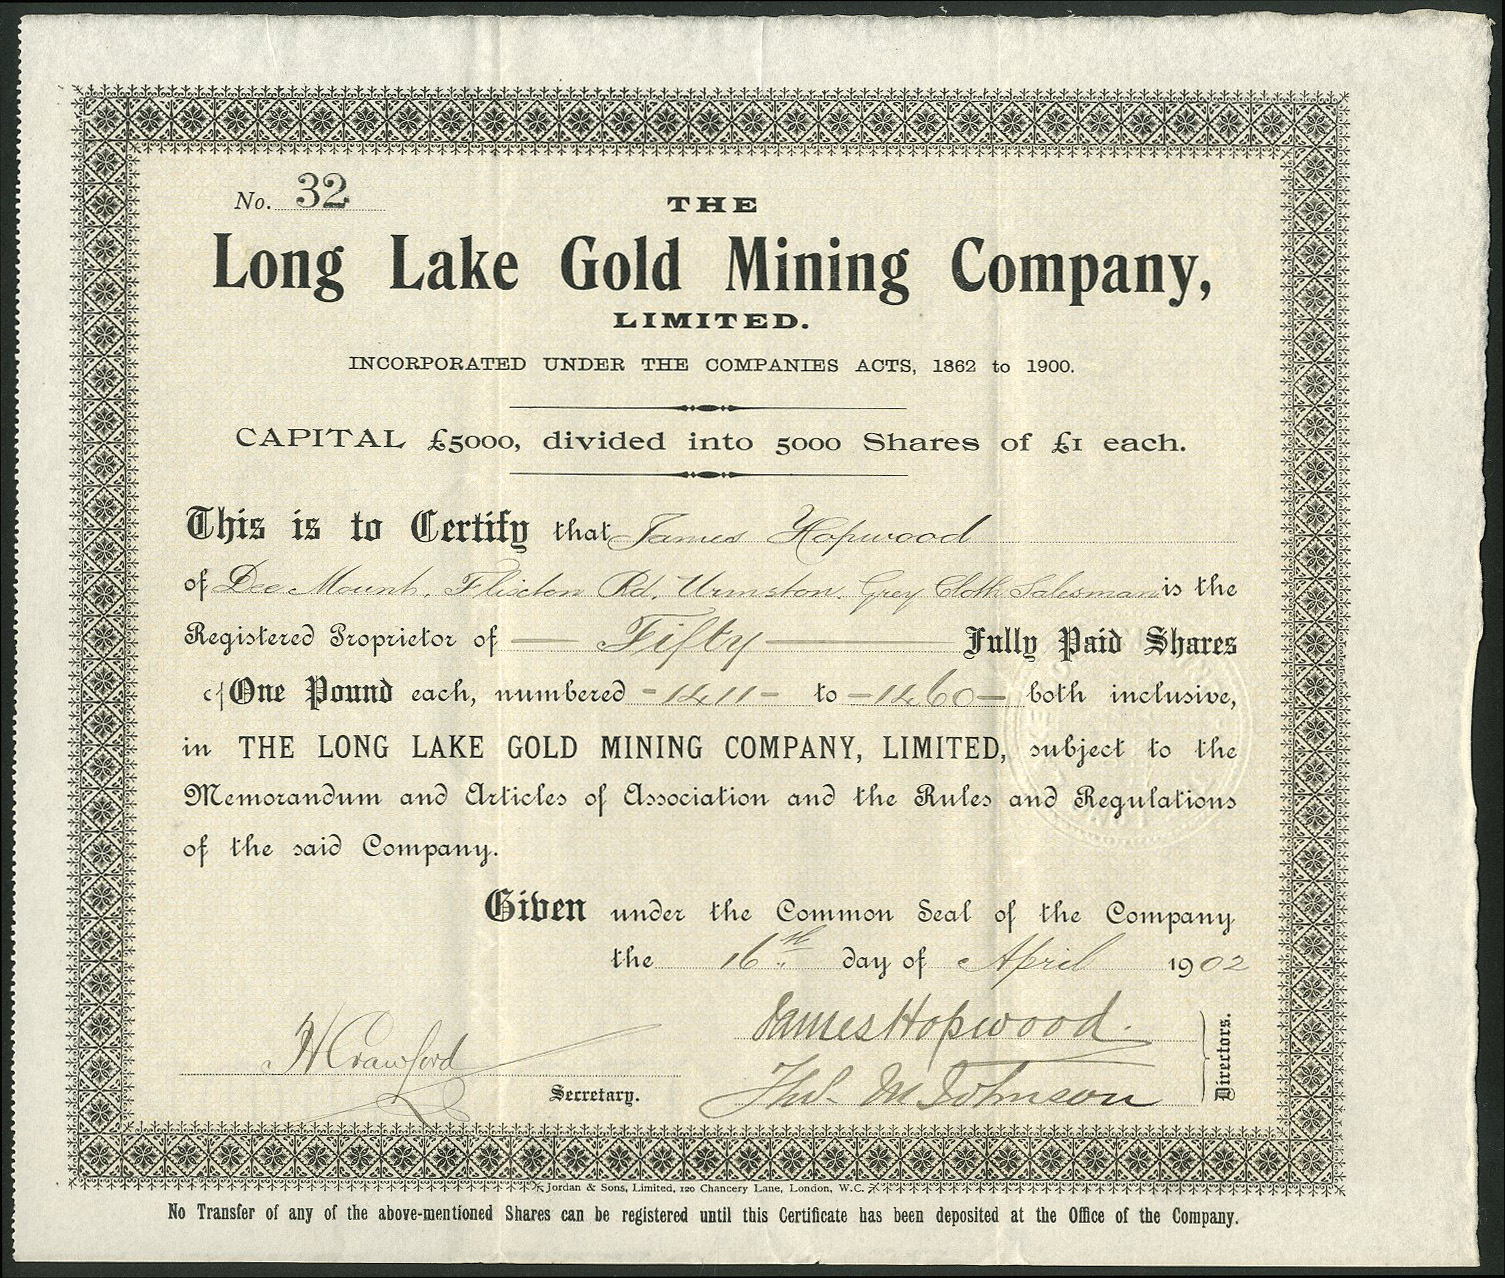 No. 32
THE
Long Lake Gold Mining Company,
LIMITED.
INCORPORATED UNDER THE COMPANIES ACTS, 1862 to 1900.
CAPITAL £5000, divided into 5000 Shares of £1 each.
This is to Certify that James Hopwood
of Dee Mount, Flixton Rd, Urmston, Grey Cloth Salesman is the
Registered Proprietor of — Fifty — Fully Paid Shares
of One Pound each, numbered - 1411 - to - 1460 - both inclusive,
in THE LONG LAKE GOLD MINING COMPANY, LIMITED, subject to the
Memorandum and Articles of Association and the Rules and Regulations
of the said Company.
Given under the Common Seal of the Company
the 16th day of April 1902
James Hopwood.
H Crawford
Secretary.
Thos. M Johnson
Directors.
Jordan & Sons, Limited, 120 Chancery Lane, London, W.C.
No Transfer of any of the above-mentioned Shares can be registered until this Certificate has been deposited at the Office of the Company.